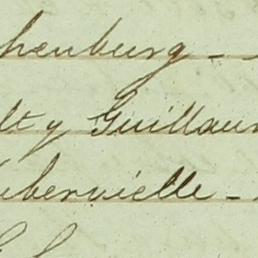 henburg -
lt y Guillaum
ubervielle -